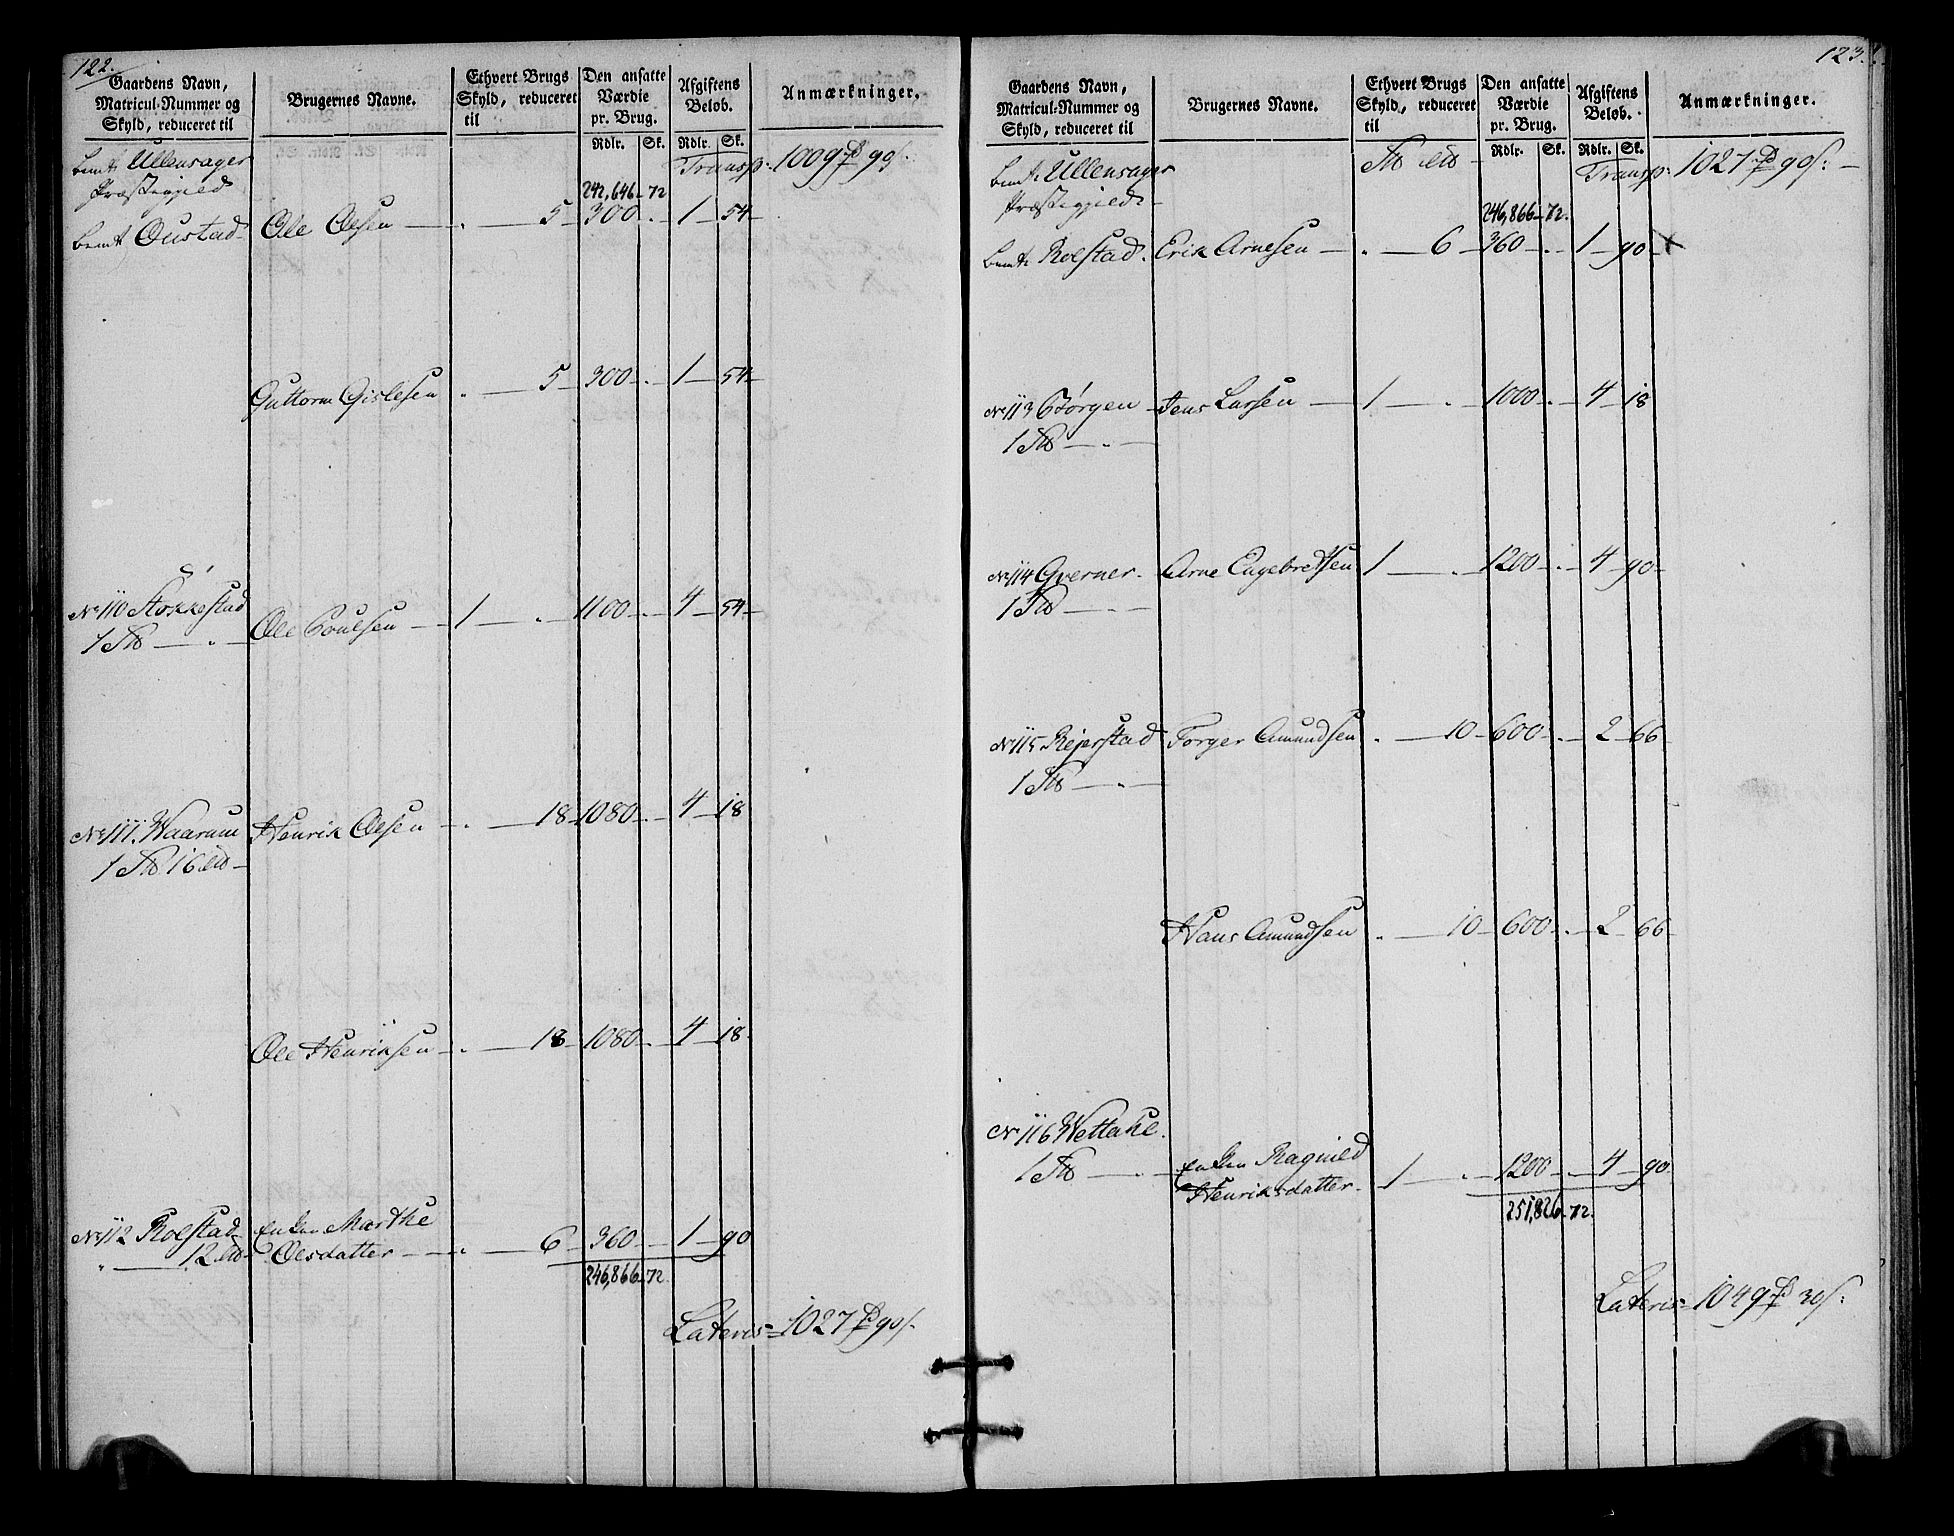 122.
Gaardens Navn, Matricul-Nummer og Skyld, reduceret til
Brugernes Navne.
Ethvert Brugs Skyld, reduceret til
Den ansatte Værdie pr. Brug.
Afgiftens Beløb.
Anmærkninger.
Rdlr. Sk. Rdlr. Sk.
bemte Ullensager Transp. 1009 90 s.
Præstegjeld 242,646 - 72
bemt Oustad Ole Olsen 5 300 1 54
Guttorm Gislesen 5 300 1 54
No 110 Stokkestad Ole Poulsen 1 1100 4 54
1
No 111. Waarum Henrik Olsen 18 1080 4 18
1 16
Ole Henriksen 18 1080 4 18
No 112 Rolstad Enken Marthe
12 Olsdatter 6 360 1 90
246,866 - 72
Lateris 1027 90 s.
123.
Gaardens Navn, Matricul-Nummer og Skyld, reduceret til
Brugernes Navne.
Ethvert Brugs Skyld, reduceret til
Den ansatte Værdie pr. Brug.
Afgiftens Beløb.
Anmærkninger.
Rdlr. Sk. Rdlr. Sk.
bemte Ullensager Transp. 1027 90 s.
Præstegjeld 246,866 - 72.
bemte Rolstad. Erik Arnesen 6 360 1 90 x
No 113 Børgen Jens Larsen 1 1000 4 18
1
No 114 Gverner Arne Engebretsen 1 1200 4 90
1
No 115 Rejerstad Torger Amundsen 10 600 2 66
1
Hans Amundsen 10 600 2 66
No 116 Wettahl.
1 Enken Ragnild
Henriksdatter 1 1200 4 90
251,826 - 72.
Lateris 1049 30 s.